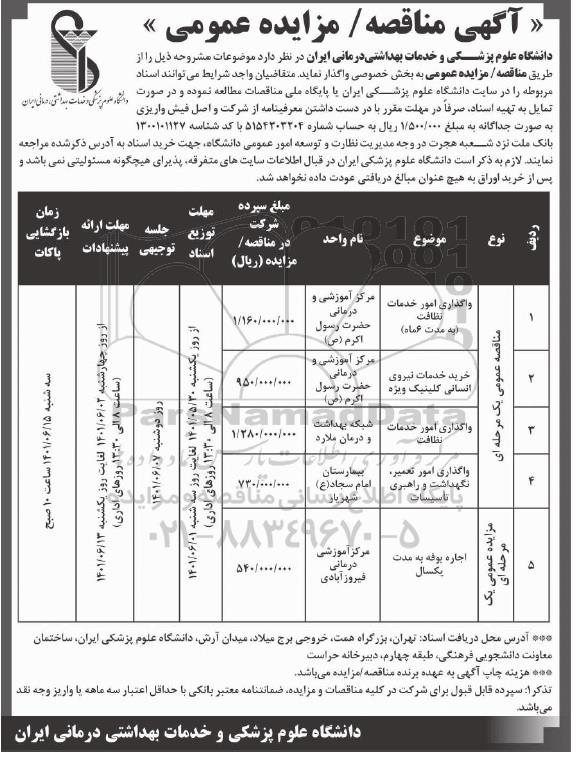 « آگهی مناقصه/ مزایده عمومی »
دانشگاه علوم پزشکی و خدمات بهداشتی،درمانی ایران
دانشگاه علوم پزشکی و خدمات بهداشتی‌درمانی ایران در نظر دارد موضوعات مشروحه ذیل را از
طریق مناقصه/ مزایده عمومی به بخش خصوصی واگذار نماید. متقاضیان واجد شرایط می‌توانند اسناد
مربوطه را در سایت دانشگاه علوم پزشکی ایران یا پایگاه ملی مناقصات مطالعه نموده و در صورت
تمایل به تهیه اسناد، صرفاً در مهلت مقرر با در دست داشتن معرفینامه از شرکت و اصل فیش واریزی
به صورت جداگانه به مبلغ ۱/۵۰۰/۰۰۰ ریال به حساب شماره ۵۱۵۴۳۰۳۲۰۴ با کد شناسه ۱۳۰۰۱۰۱۱۲۷
بانک ملت نزد شعبه هجرت در وجه مدیریت نظارت و توسعه امور عمومی دانشگاه، جهت خرید اسناد به آدرس ذکرشده مراجعه
نمایند. لازم به ذکر است دانشگاه علوم پزشکی ایران در قبال اطلاعات سایت های متفرقه، پذیرای هیچگونه مسئولیتی نمی باشد و
پس از خرید اوراق به هیچ عنوان مبالغ دریافتی عودت داده نخواهد شد.
ردیف
نوع
موضوع
نام واحد
مبلغ سپرده
شرکت
در مناقصه/
مزایده (ریال)
مهلت
توزیع
اسناد
جلسه
توجیهی
مهلت ارائه
پیشنهادات
زمان
بازگشایی
پاکات
مناقصه عمومی یک مرحله ای
۱
واگذاری امور خدمات
نظافت
(به مدت ۶ماه)
مرکز آموزشی و
درمانی
حضرت رسول
اکرم (ص)
۱/۱۶۰/۰۰۰/۰۰۰
۲
خرید خدمات نیروی
انسانی کلینیک ویژه
مرکز آموزشی و
درمانی
حضرت رسول
اکرم (ص)
۹۵۰/۰۰۰/۰۰۰
۳
واگذاری امور خدمات
نظافت
شبکه بهداشت
و درمان ملارد
۱/۲۸۰/۰۰۰/۰۰۰
۴
واگذاری امور تعمیر،
نگهداشت و راهبری
تأسیسات
بیمارستان
امام سجاد(ع)
شهریار
۷۳۰/۰۰۰/۰۰۰
مزایده عمومی یک
مرحله ای
۵
اجاره بوفه به مدت
یکسال
مرکزآموزشی
درمانی
فیروزآبادی
۵۴۰/۰۰۰/۰۰۰
از روز یکشنبه ۱۴۰۱/۰۵/۳۰ لغایت روز سه شنبه ۱۴۰۱/۰۶/۰۱
(ساعت ۸ الی ۱۳:۳۰ روزهای اداری)
روز دوشنبه ۱۴۰۱/۰۶/۰۷
از روز چهارشنبه ۱۴۰۱/۰۶/۰۲ لغایت روز یکشنبه ۱۴۰۱/۰۶/۱۳
(ساعت ۸ الی ۱۳:۳۰ روزهای اداری)
سه شنبه ۱۴۰۱/۰۶/۱۵ ساعت ۱۰ صبح
ParsNamadData
پایگاه اطلاع رسانی مناقصه و مزایده
۰۲۱-۸۸۳۴۹۶۷۰-۵
*** آدرس محل دریافت اسناد: تهران، بزرگراه همت، خروجی برج میلاد، میدان آرش، دانشگاه علوم پزشکی ایران، ساختمان
معاونت دانشجویی فرهنگی، طبقه چهارم، دبیرخانه حراست
*** هزینه چاپ آگهی به عهده برنده مناقصه/مزایده می‌باشد.
تذکر۱: سپرده قابل قبول برای شرکت در کلیه مناقصات و مزایده، ضمانتنامه معتبر بانکی با حداقل اعتبار سه ماهه یا واریز وجه نقد
می‌باشد.
دانشگاه علوم پزشکی و خدمات بهداشتی درمانی ایران